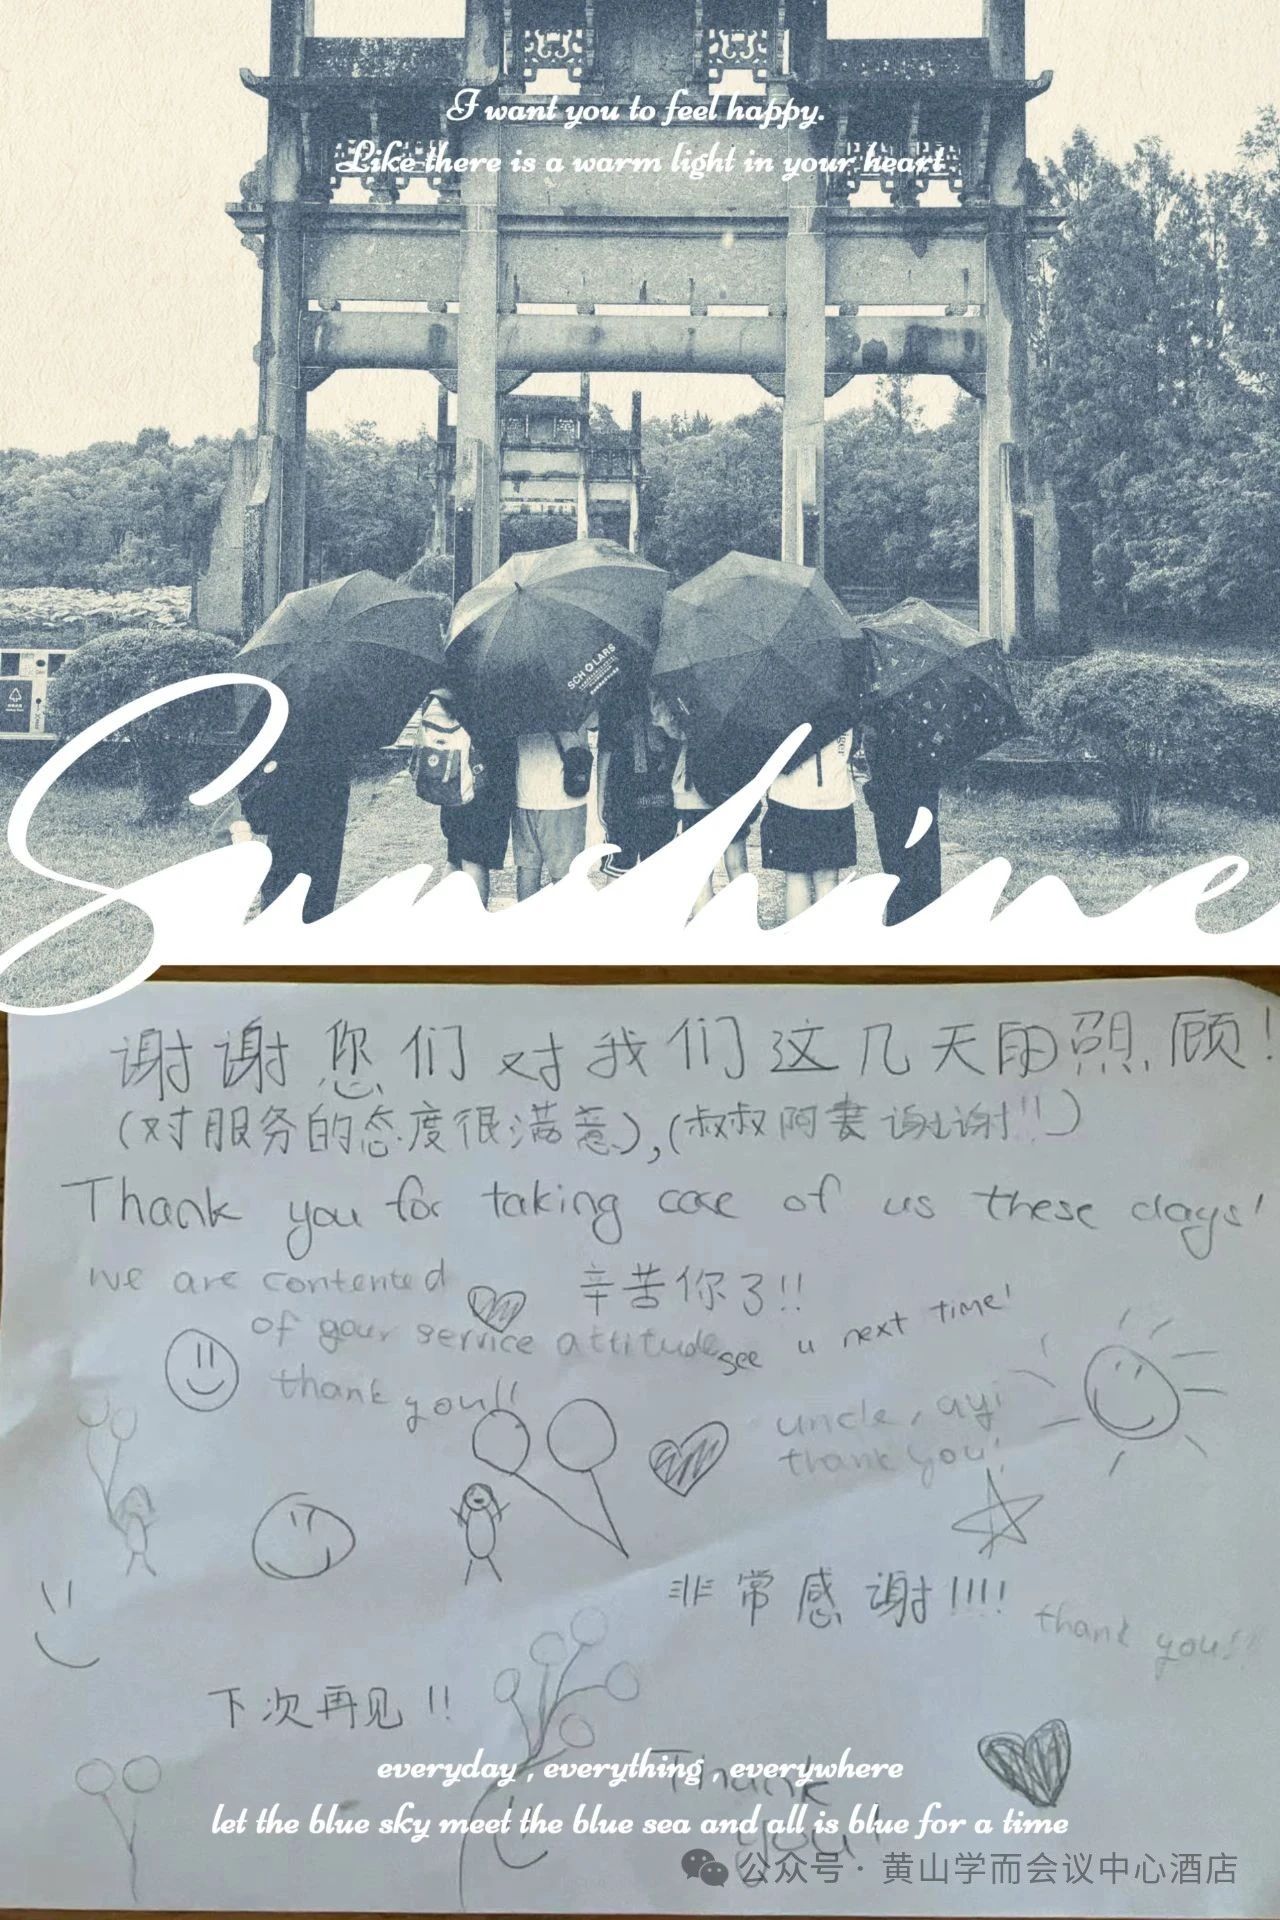 I want you to feel happy.
Like there is a warm light in your heart
SCHOLARS
Sunshine
谢谢您们对我们这几天的照顾!
(对服务的态度很满意),(叔叔阿姨谢谢!!)
Thank you for taking care of us these days!
we are contented
辛苦你了!!
of your service attitude
see u next time!
thank you!!
uncle, ayi
thank you!
非常感谢!!!!
thank you!!
下次再见!!
everyday , everything , everywhere
Thank
let the blue sky meet the blue sea and all is blue for a time
you!
公众号 · 黄山学而会议中心酒店